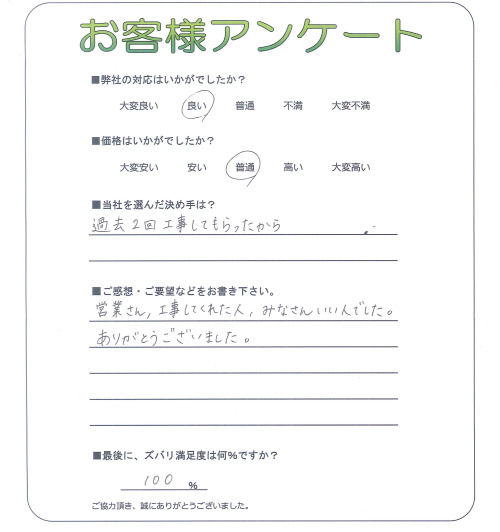 お客様アンケート
■弊社の対応はいかがでしたか？
大変良い 良い 普通 不満 大変不満
■価格はいかがでしたか？
大変安い 安い 普通 高い 大変高い
■当社を選んだ決め手は？
過去2回工事してもらったから
■ご感想・ご要望などをお書き下さい。
営業さん,工事してくれた人,みなさんいい人でした。
ありがとうございました。
■最後に、ズバリ満足度は何%ですか？
100 %
ご協力頂き、誠にありがとうございました。